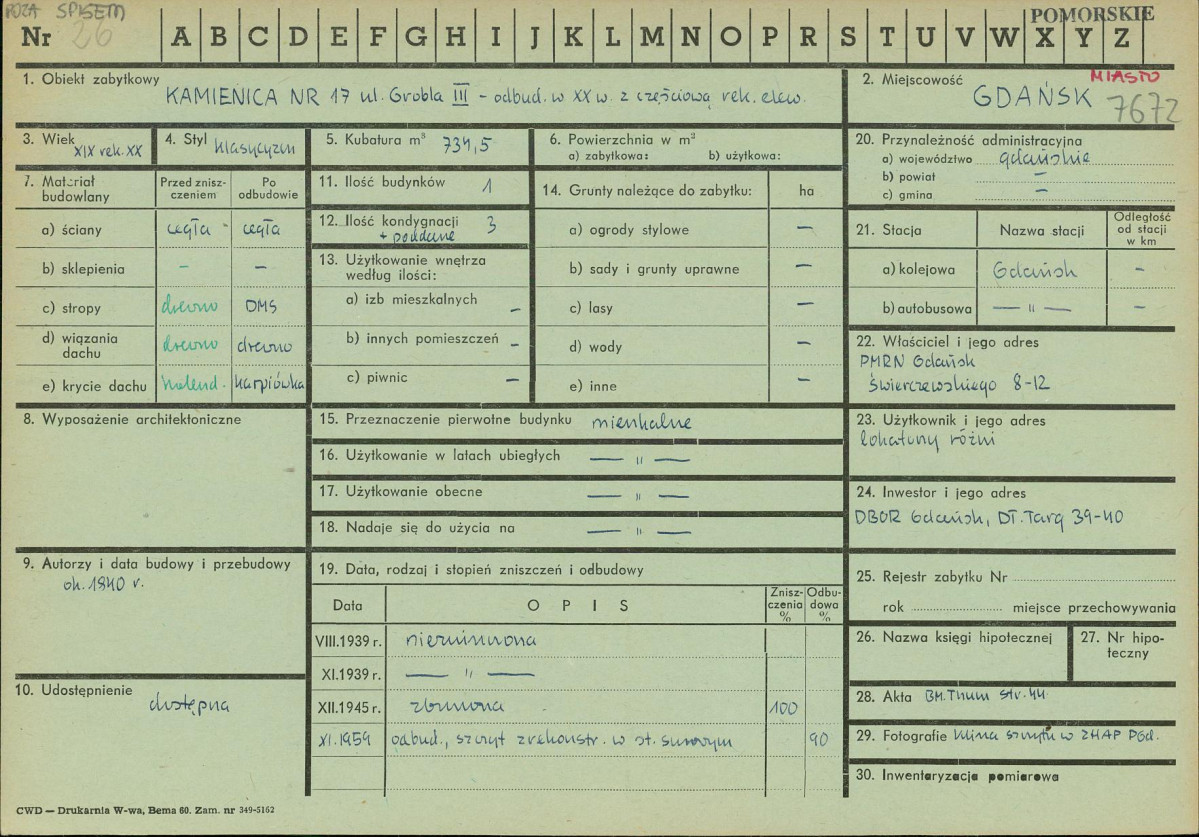 POZA SPISEM
Nr 26 A B C D E F G H I J K L M N O P R S T U V W X Y Z
POMORSKIE
1. Obiekt zabytkowy
KAMIENICA NR 17 ul. Grobla III - odbud. w XX w. z częściową rek. elew.
2. Miejscowość MIASTO
GDAŃSK 7672
3. Wiek XIX rek. XX
4. Styl klasycyzm
5. Kubatura m³ 734,5
6. Powierzchnia w m²
a) zabytkowa: b) użytkowa:
7. Materiał budowlany
Przed zniszczeniem
Po odbudowie
a) ściany cegła - cegła
b) sklepienia – –
c) stropy drewno DMS
d) wiązania dachu drewno drewno
e) krycie dachu holend. karpiówka
8. Wyposażenie architektoniczne
9. Autorzy i data budowy i przebudowy
ok. 1840 r.
10. Udostępnienie
dostępna
11. Ilość budynków 1
12. Ilość kondygnacji 3
+ poddasze
13. Użytkowanie wnętrza
według ilości:
a) izb mieszkalnych –
b) innych pomieszczeń –
c) piwnic –
14. Grunty należące do zabytku: ha
a) ogrody stylowe –
b) sady i grunty uprawne –
c) lasy –
d) wody –
e) inne –
15. Przeznaczenie pierwotne budynku mieszkalne
16. Użytkowanie w latach ubiegłych — " —
17. Użytkowanie obecne — " —
18. Nadaje się do użycia na — " —
19. Data, rodzaj i stopień zniszczeń i odbudowy
Data OPIS Zniszczenia % Odbudowa %
VIII.1939 r. niezniszczona
XI.1939 r. — " —
XII.1945 r. zburzona 100
XI.1959 odbud., szczyt zrekonstr. w st. surowym 90
20. Przynależność administracyjna
a) województwo gdańskie
b) powiat –
c) gmina –
21. Stacja Nazwa stacji Odległość od stacji w km
a) kolejowa Gdańsk –
b) autobusowa — " — –
22. Właściciel i jego adres
PMRN Gdańsk
Świerczewskiego 8-12
23. Użytkownik i jego adres
lokatorzy różni
24. Inwestor i jego adres
DBOR Gdańsk, Dł. Targ 39-40
25. Rejestr zabytku Nr
rok miejsce przechowywania
26. Nazwa księgi hipotecznej
27. Nr hipoteczny
28. Akta BM. Thum str. 44
29. Fotografie klisza szczytu w ZHAP PGd.
30. Inwentaryzacja pomiarowa
CWD — Drukarnia W-wa, Bema 60. Zam. nr 349-5162